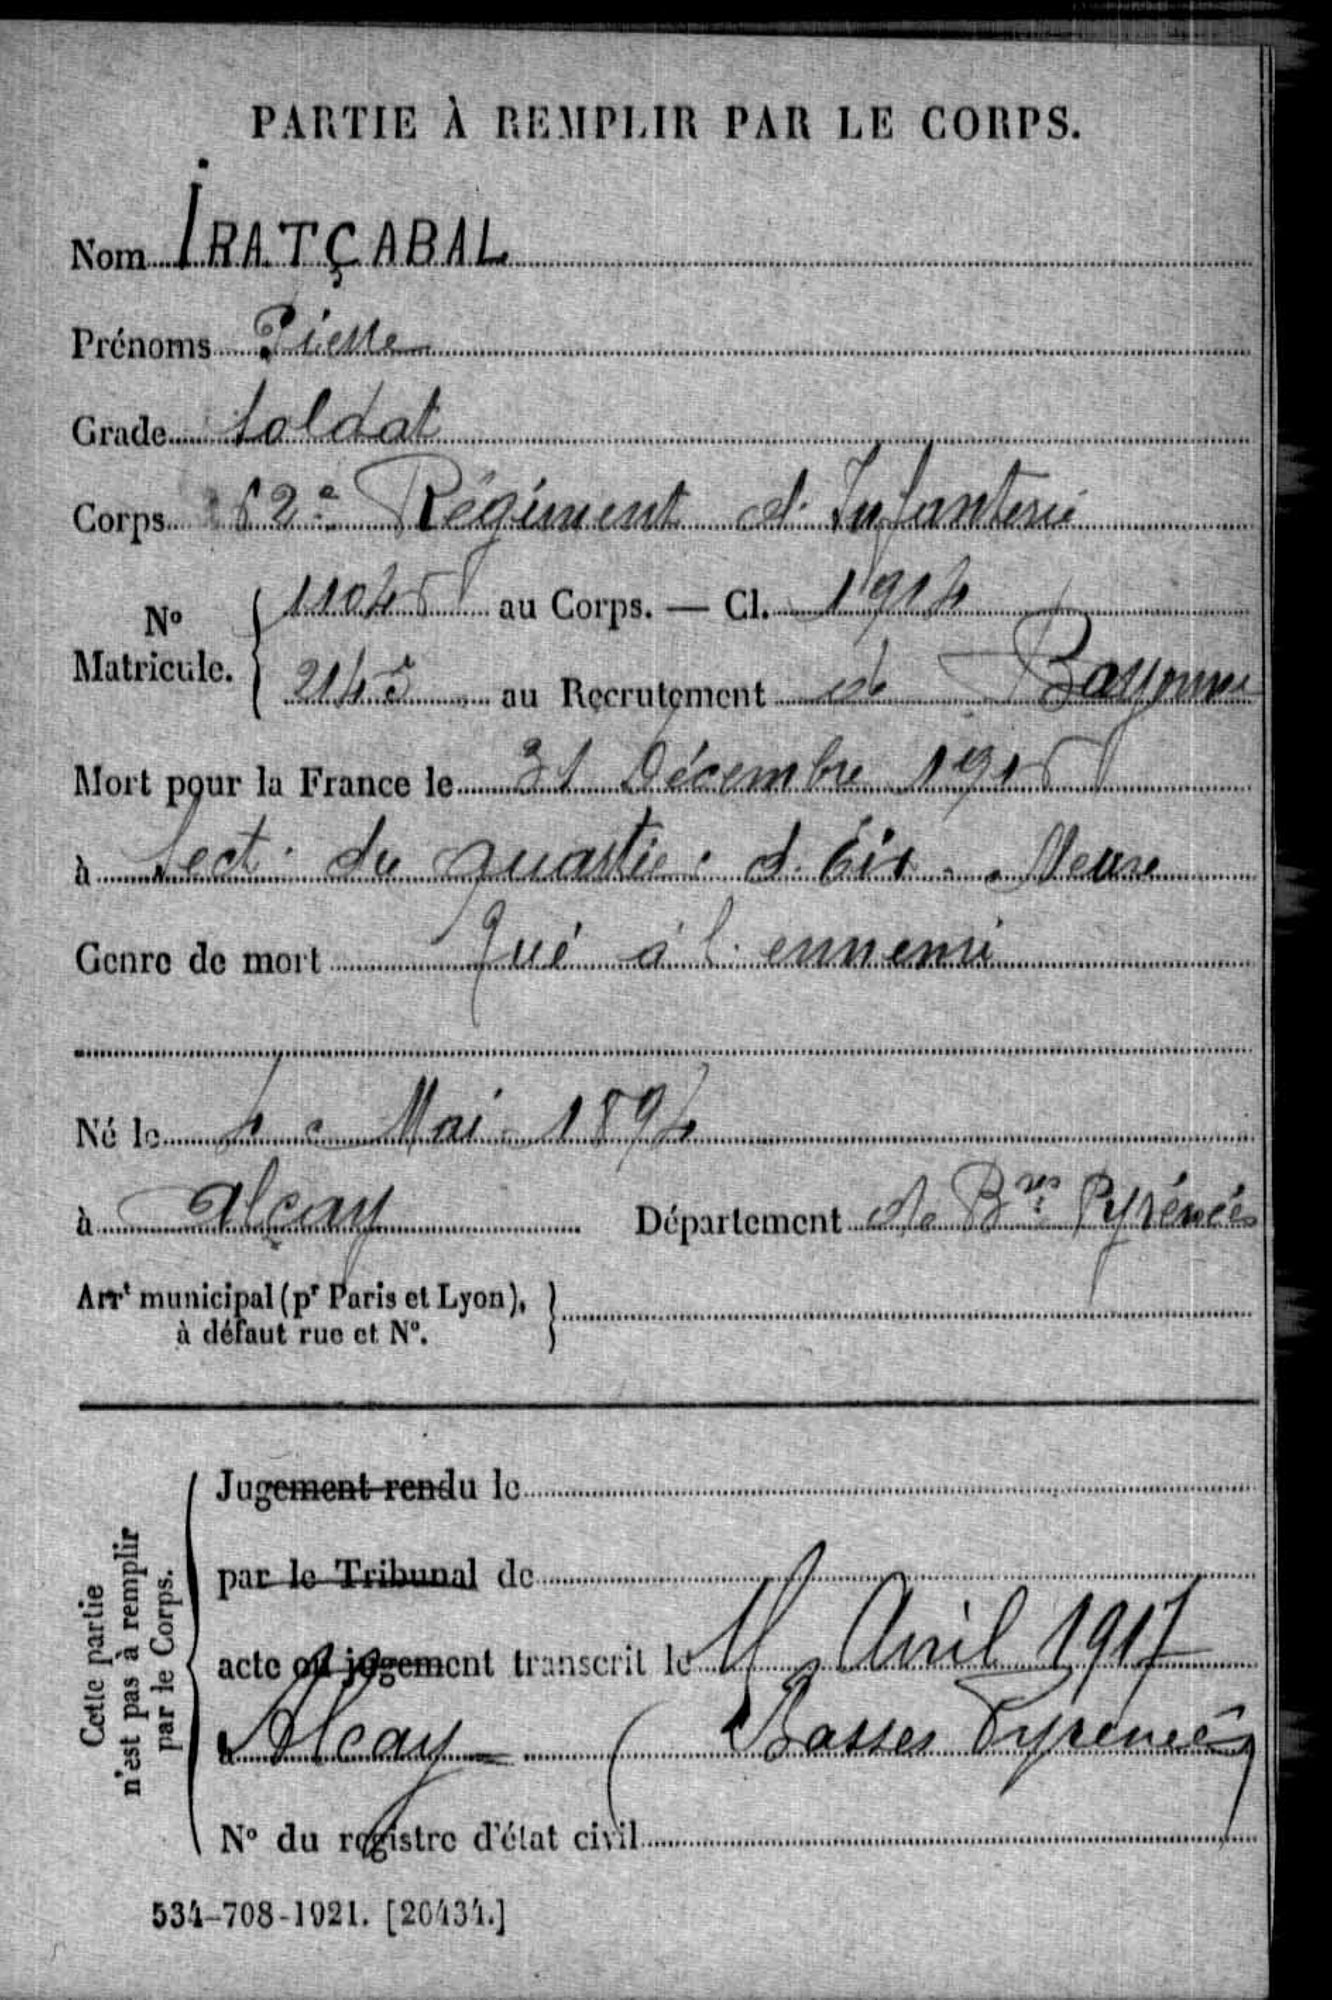 PARTIE À REMPLIR PAR LE CORPS.
Nom IRATÇABAL
Prénoms Pierre
Grade Soldat
Corps 2e Régiment d'Infanterie
No Matricule. 11045 au Corps. — Cl. 1914
2143 au Recrutement de Bayonne
Mort pour la France le 31 Décembre 1915
à Sect. du quartier d'Eix - Meuse
Genre de mort Tué à l'ennemi
Né le 4 Mai 1894
à Alçay Département de Bses Pyrénées
Arrt municipal (pr Paris et Lyon),
à défaut rue et No.
Cette partie
n'est pas à remplir
par le Corps.
Jugement rendu le
par le Tribunal de
acte ou jugement transcrit le Avril 1917
à Alcay (Basses Pyrénées)
No du registre d'état civil
534-708-1921. [26434.]